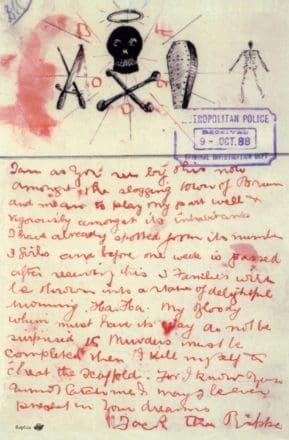 ETROPOLITAN POLICE
RECEIVED
9 - OCT. 88
INVESTIGATION DEPT
I am as you see by this now
amongst the slogging town of Brum
and mean to play my part well &
vigorously amongst its inhabitants
I have already spotted from its number
girls and before one week is passed
after receiving this 3 Families will
be thrown into a state of delightful
mourning. Ha. Ha. My Bloody
whim must have its way do not be
surprised 15 Murders must be
completed then I kill myself &
cheat the scaffold. For I know you
cannot catch me & may I be ever
present in your dreams
Jack the Ripper
Replica